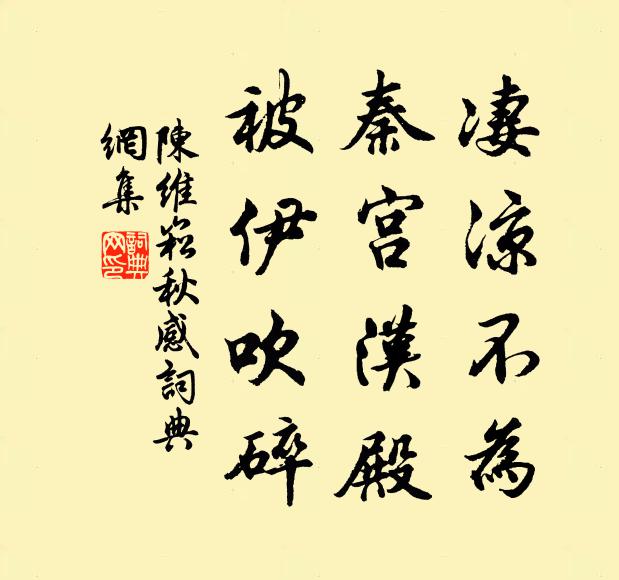 凄涼不為
秦宮漢殿
被伊吹碎
陳維崧秋感詞典
網集
詞典网印